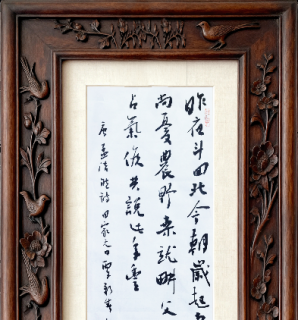 昨夜斗回北今朝歲起
尚憂農野桒就畊父
占氣候共說此年豐
唐孟浩然詩田家元日